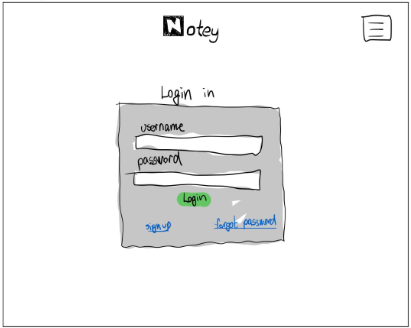 Notey
Login in
username
password
Login
signup
forgot password